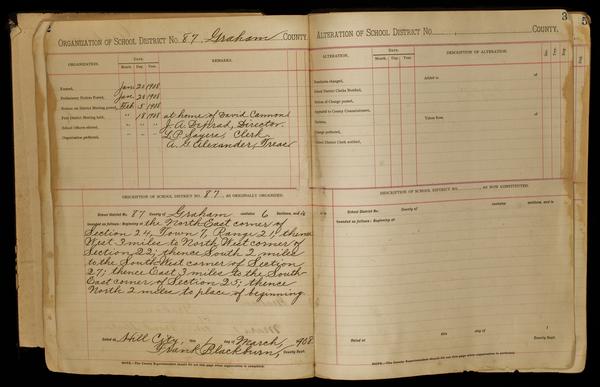 ORGANIZATION OF SCHOOL DISTRICT No. 87, Graham COUNTY.
ORGANIZATION. DATE. REMARKS.
Month. Day. Year.
Formed, Jan. 20 1908
Preliminary Notices Posted, Jan. 20 1908
Notices on District Meeting posted, Feb. 5 1908
First District Meeting held, " 18 1908 at home of David Cannon
School Officers elected, " " " Director.
Organization perfected, " " " L.P. Sayers, Clerk
A.G. Alexander, Treas
DESCRIPTION OF SCHOOL DISTRICT No. 87, AS ORIGINALLY ORGANIZED.
School District No. 87 County of Graham contains 6 Sections, and is
bounded as follows: Beginning at the North East corner of
Section 24, Town 7, Range 21; thence
West 3 miles to North West corner of
Section 22; thence South 2 miles
to the South West corner of Section
27; thence East 3 miles to the South
East corner of Section 25; thence
North 2 miles to place of beginning.
Dated at Hill City, this 1 day of March, 1908
Frank Blackburn, County Supt.
NOTE.—The County Superintendent should fill out this page when organization is completed.
3
ALTERATION OF SCHOOL DISTRICT No. COUNTY.
ALTERATION. DATE. DESCRIPTION OF ALTERATION.
Month. Day. Year.
Boundaries changed, Added to of
School District Clerks Notified,
Notices of Change posted,
Appealed to County Commissioners,
Decision, Taken from of
Change perfected,
School District Clerk notified,
DESCRIPTION OF SCHOOL DISTRICT No. , AS NOW CONSTITUTED.
School District No. County of contains sections, and is
bounded as follows: Beginning at
Dated at this day of 1
County Supt.